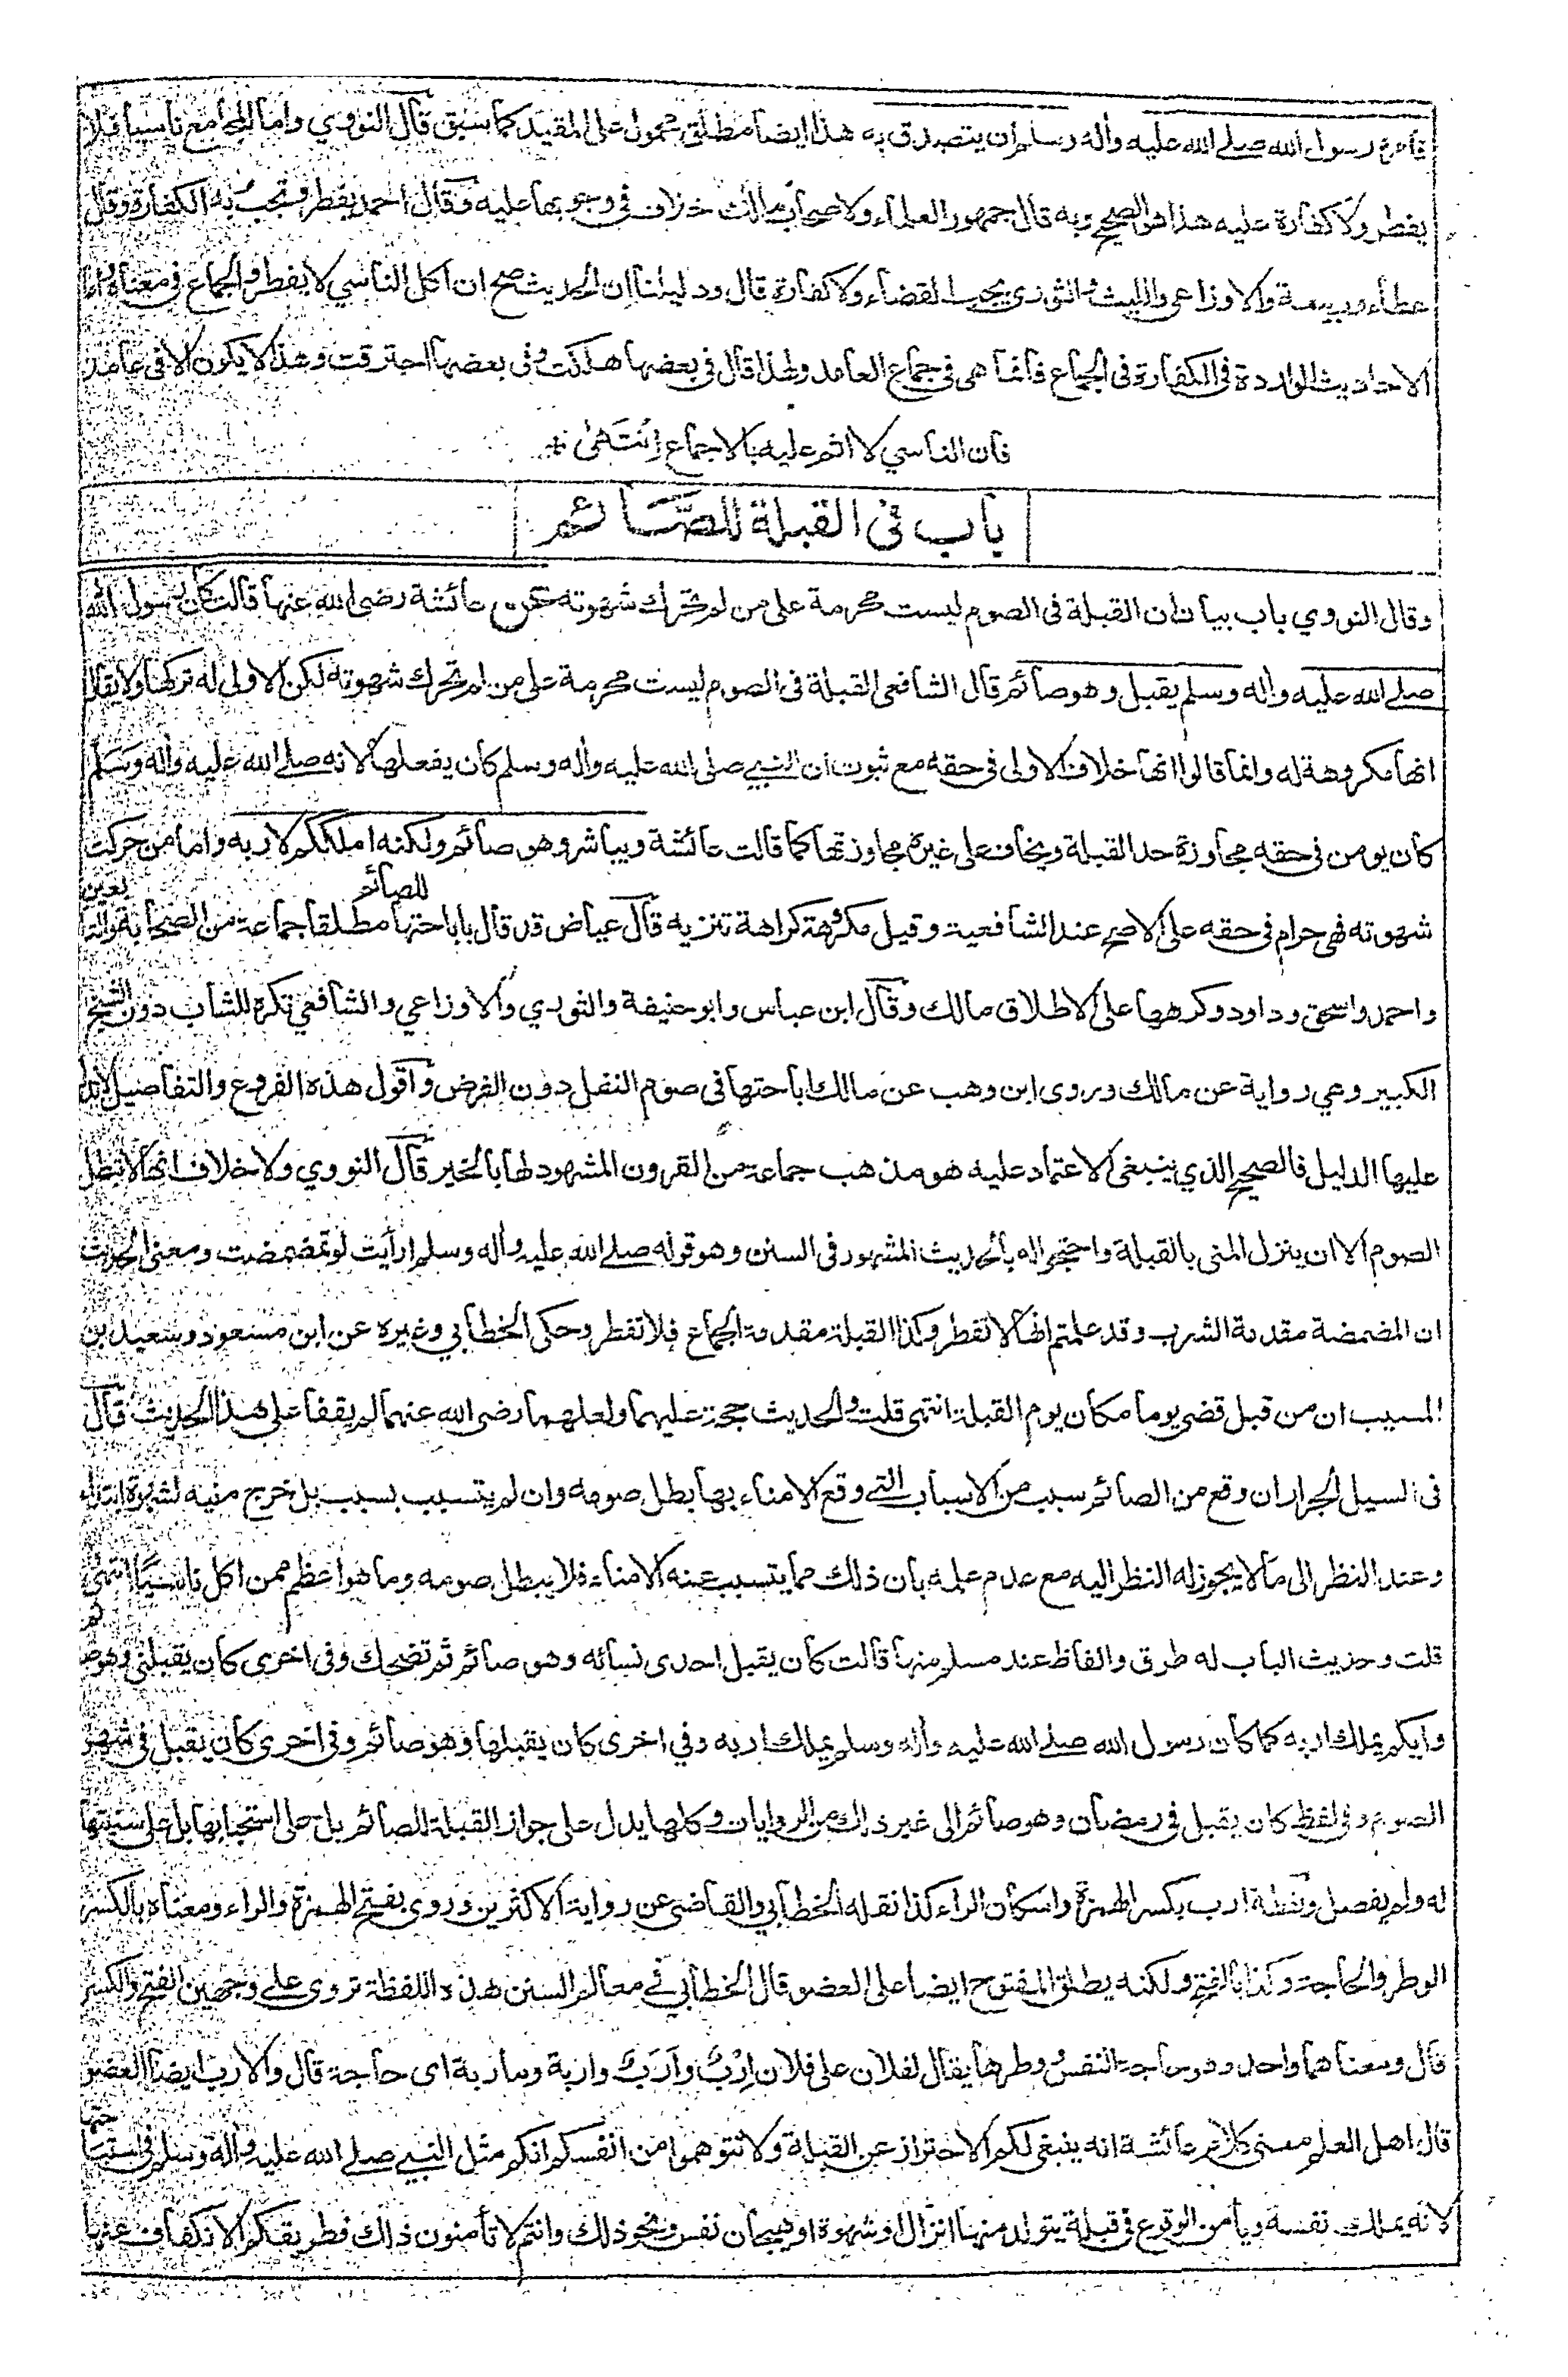 فأمره رسول الله صلى الله عليه وأله وسلم أن يتصدق به هذا ايضا مطلق محمول على المقيد كما سبق قال النووي واما المجامع ناسيا فلا
يفطر ولا كفارة عليه هذا هو الصحيح وبه قال جمهور العلماء ولاصحاب مالك خلاف في وجوبها عليه وقال احمد يفطر وتجب به الكفارة وقال
عطاء وربيعة والاوزاعي والليث والثوري يجب القضاء ولا كفارة قال ودليلنا ان الحديث صح ان اكل الناسي لا يفطر والجماع في معناه واما
الاحاديث الواردة في الكفارة في الجماع فانما هي في جماع العامد ولهذا قال في بعضها هلكت وفي بعضها احترقت وهذا لا يكون الا في عامد
فان الناسي لا اثم عليه بالاجماع انتهى
باب في القبلة للصائم
وقال النووي باب بيان ان القبلة في الصوم ليست محرمة على من لم تحرك شهوته عن عائشة رضي الله عنها قالت كان رسول الله
صلى الله عليه وأله وسلم يقبل وهو صائم قال الشافعي القبلة في الصوم ليست محرمة على من لم تحرك شهوته لكن الاولى له تركها ولا يقال
انها مكروهة له وانما قالوا انها خلاف الاولى في حقه مع ثبوت ان النبي صلى الله عليه وأله وسلم كان يفعلها لانه صلى الله عليه وأله وسلم
كان يومن في حقه مجاوزة حد القبلة ويخاف على غيره مجاوزتها كما قالت عائشة ويباشر وهو صائم ولكنه املككم لاربه واما من حركت
شهوته فهي حرام في حقه على الاصح عند الشافعية وقيل مكروهة كراهة تنزيه قال عياض قد قال باباحتها للصائم مطلقا جماعة من الصحابة والتابعين
واحمد واسحق وداود وكرهها على الاطلاق مالك وقال ابن عباس وابو حنيفة والثوري والاوزاعي والشافعي تكره للشاب دون الشيخ
الكبير وهي رواية عن مالك وروى ابن وهب عن مالك اباحتها في صوم النفل دون الفرض واقول هذه الفروع والتفاصيل لا بد
عليها الدليل فالصحيح الذي ينبغي الاعتماد عليه هو مذهب جماعة من القرون المشهود لها بالخير قال النووي ولا خلاف انها لا تبطل
الصوم الا ان ينزل المني بالقبلة واحتجوا له بالحديث المشهور في السنن وهو قوله صلى الله عليه وأله وسلم ارأيت لو تمضمضت ومعنى الحديث
ان المضمضة مقدمة الشرب وقد علمتم انها لا تفطر وكذا القبلة مقدمة الجماع فلا تفطر وحكى الخطابي وغيره عن ابن مسعود وسعيد بن
المسيب ان من قبل قضى يوما مكان يوم القبلة انتهى قلت والحديث حجة عليهما ولعلهما رضي الله عنهما لم يقفا على هذا الحديث قال
في السيل الجرار ان وقع من الصائم سبب من الاسباب التي وقع الامناء بها بطل صومه وان لم يتسبب بسبب بل خرج منيه لشهوة ابتداء
وعند النظر الى ما لا يجوز له النظر اليه مع عدم علمه بان ذلك مما يتسبب عنه الامناء فلا يبطل صومه وما هو اعظم ممن اكل ناسيا انتهى
قلت وحديث الباب له طرق والفاظ عند مسلم منها قالت كان يقبل احدى نسائه وهو صائم ثم تضحك وفي اخرى كان يقبلني وهو صائم
وايكم يملك اربه كما كان رسول الله صلى الله عليه وأله وسلم يملك اربه وفي اخرى كان يقبلها وهو صائم وفي اخرى كان يقبل في شهر
الصوم وفي لفظ كان يقبل في رمضان وهو صائم الى غير ذلك من الروايات وكلها يدل على جواز القبلة للصائم بل على استحبابها بل على سنيتها
له ولم يفصل ولفظة ارب بكسر الهمزة واسكان الراء كذا نقله الخطابي والقاضي عن رواية الاكثرين وروي بفتح الهمزة والراء ومعناه بالكسر
الوطر والحاجة وكذا بالفتح ولكنه يطلق المفتوح ايضا على العضو قال الخطابي في معالم السنن هذه اللفظة تروى على وجهين الفتح والكسر
قال ومعناهما واحد وهو حاجة النفس ووطرها يقال لفلان على فلان إرْبٌ وأَرَبٌ واربة ومأربة اى حاجة قال والارب ايضا العضو
قال اهل العلم معنى كلام عائشة انه ينبغي لكم الاحتراز عن القبلة ولا تتوهموا من انفسكم انكم مثل النبي صلى الله عليه وأله وسلم في استباحتها
لانه يملك نفسه ويأمن الوقوع في قبلة يتولد منها انزال او شهوة او هيجان نفس ونحو ذلك وانتم لا تأمنون ذلك فطريقكم الانكفاف عنها